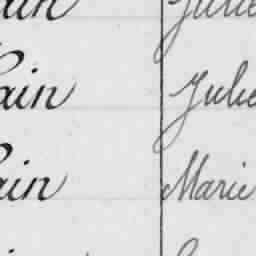 ain Julie
ain Julie
ain Marie